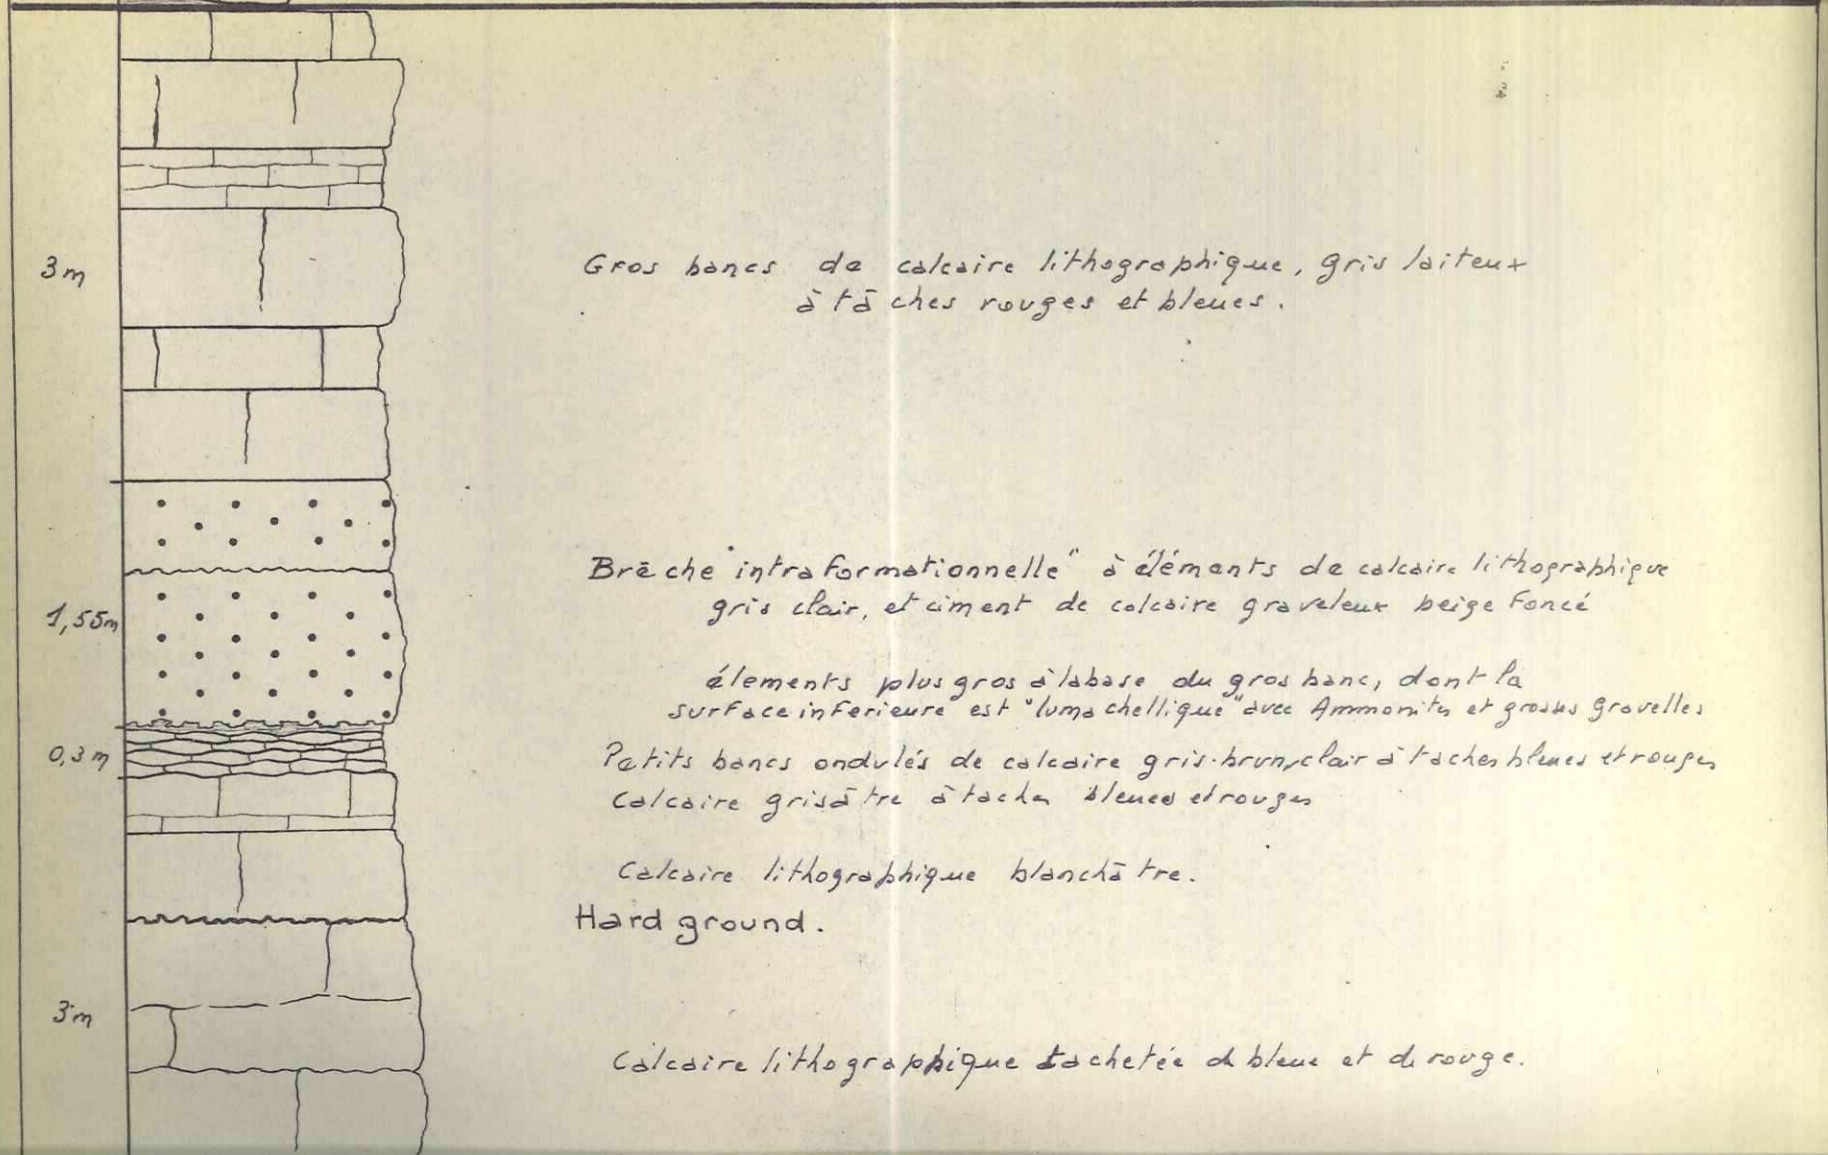 3m
Gros bancs de calcaire lithographique, gris laiteux
à tâches rouges et bleues.
1,55m
Brèche "intraformationnelle" à éléments de calcaire lithographique
gris clair, et ciment de calcaire graveleux beige foncé
élements plus gros à la base du gros banc, dont la
surface inferieure est "lumachellique" avec Ammonites et grosses gravelles
0,3m
Petits bancs ondulés de calcaire gris-brun, clair à taches bleues et rouges
Calcaire grisâtre à taches bleues et rouges
Calcaire lithographique blanchâtre.
Hard ground.
3m
Calcaire lithographique tachetée de bleue et de rouge.